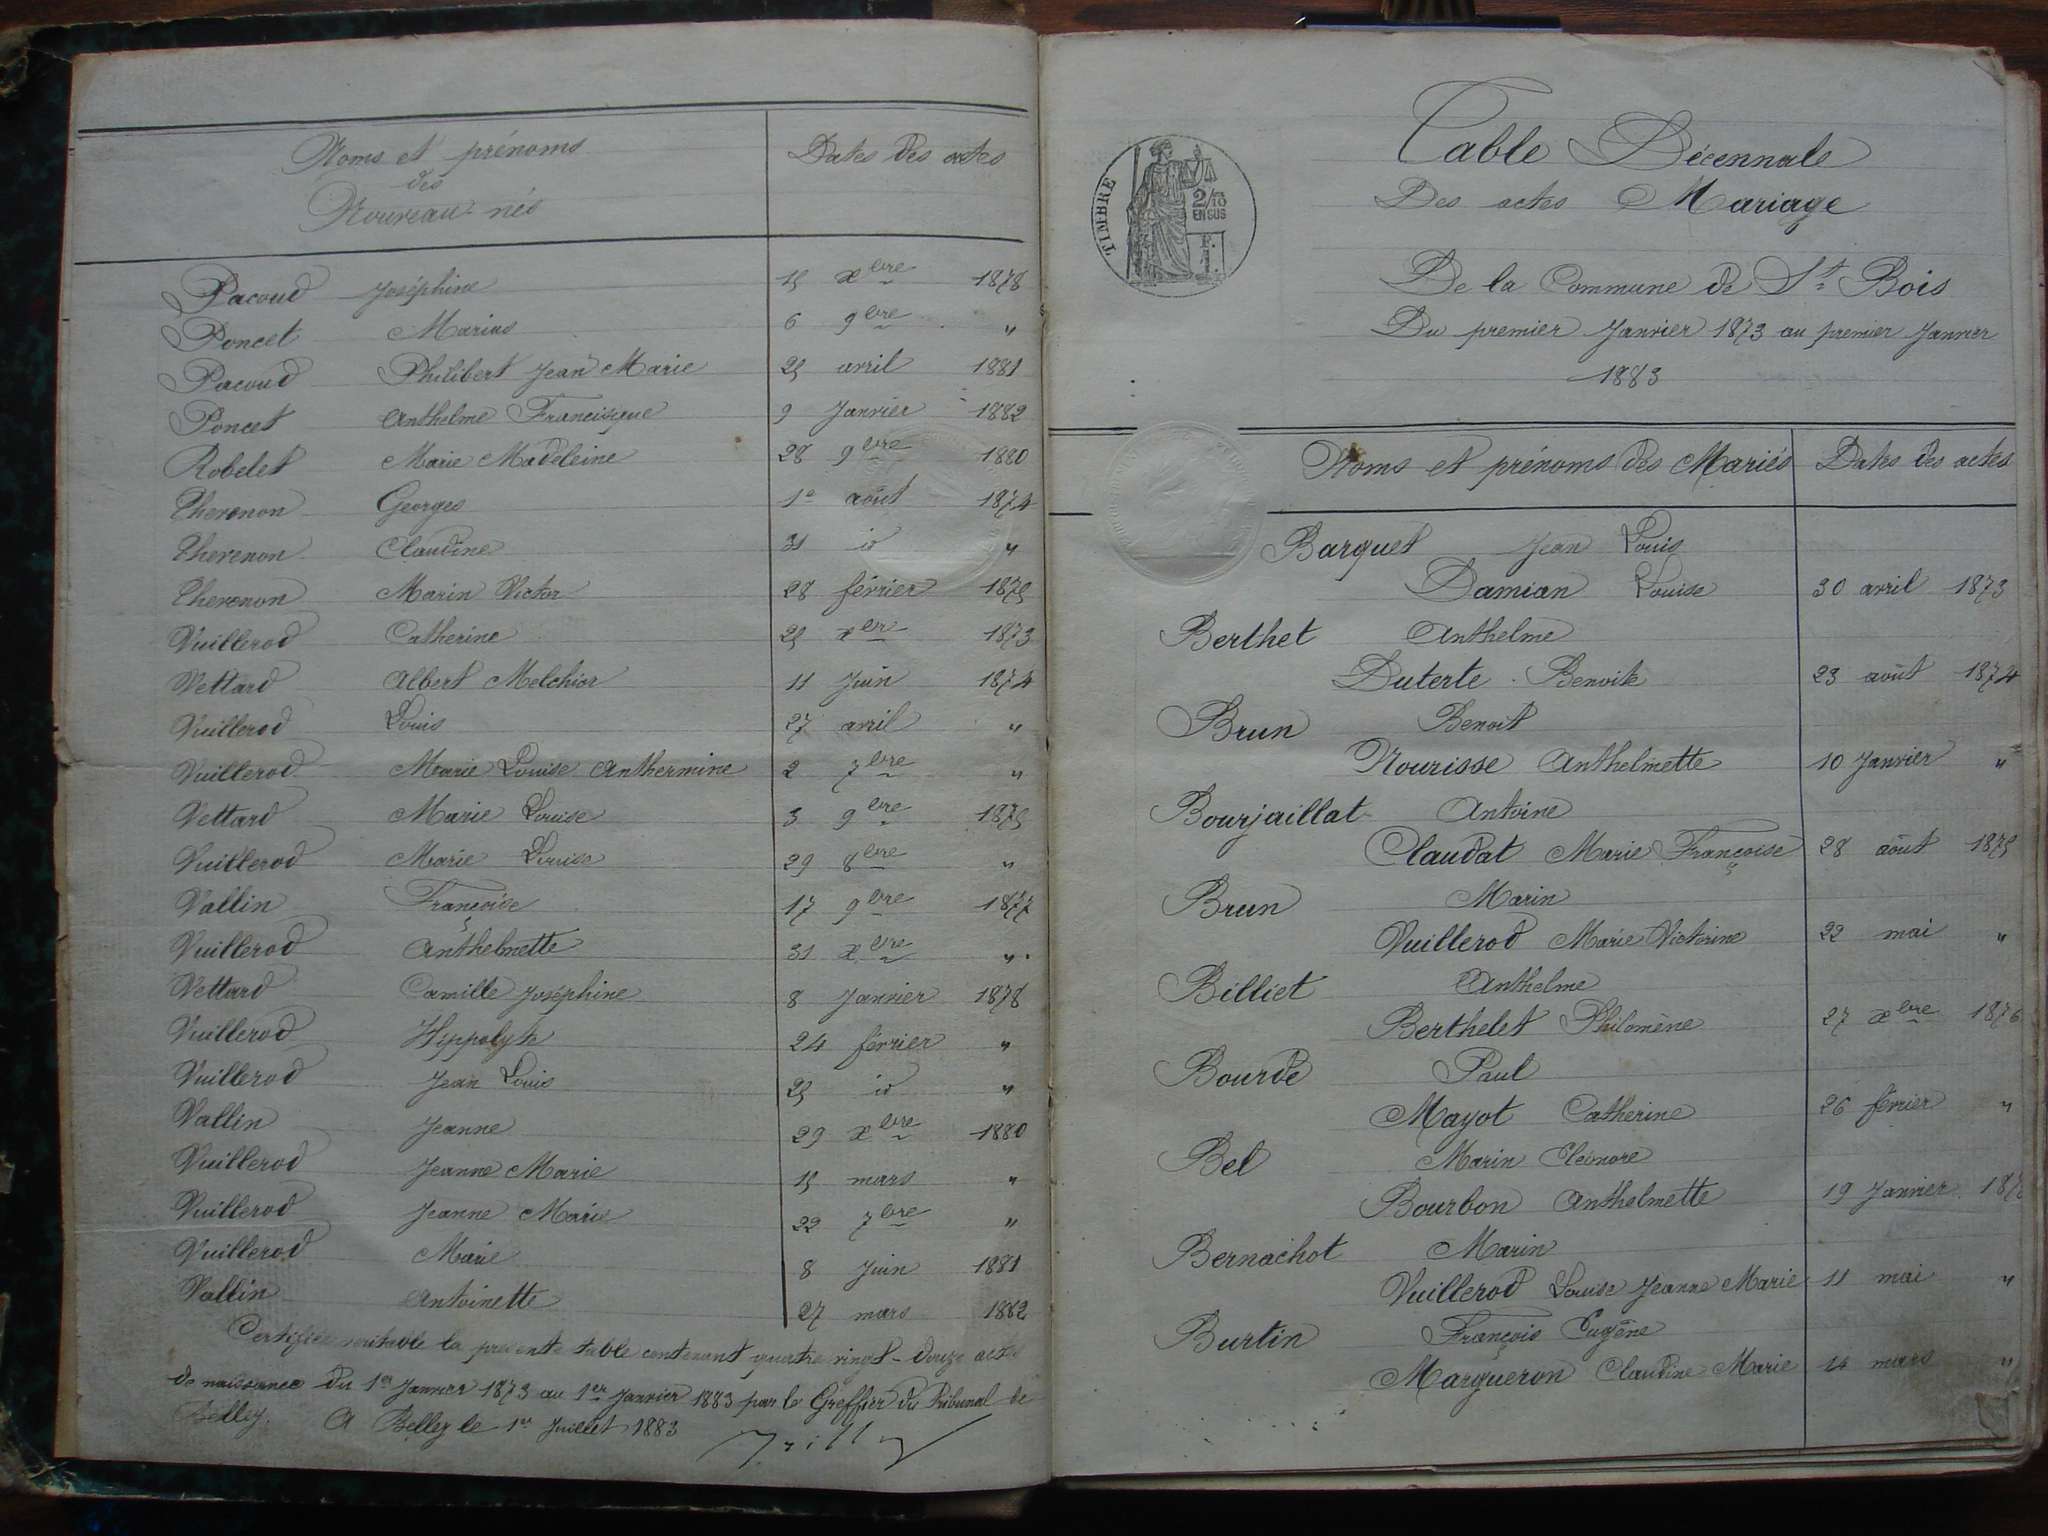 Noms et prénoms
des
Nouveau-nés
Dates des actes
Pacoud Joséphine 15 xbre 1878
Poncet Marius 6 9bre "
Pacoud Philibert Jean Marie 25 avril 1881
Poncet Anthelme Francisque 9 Janvier 1882
Robelet Marie Madeleine 28 9bre 1880
Thevenon Georges 1e août 1874
Thevenon Claudine 31 id "
Thevenon Marin Victor 28 février 1875
Vuillerod Catherine 25 xbre 1873
Vettard Albert Melchior 11 Juin 1874
Vuillerod Louis 27 avril "
Vuillerod Marie Louise Anthermine 2 7bre "
Vettard Marie Louise 3 9bre 1875
Vuillerod Marie Louise 29 8bre "
Vallin Françoise 17 9bre 1877
Vuillerod Anthelmette 31 xbre "
Vettard Camille Joséphine 8 Janvier 1878
Vuillerod Hyppolyte 24 février "
Vuillerod Jean Louis 25 id "
Vallin Jeanne 29 xbre 1880
Vuillerod Jeanne Marie 15 mars "
Vuillerod Jeanne Marie 22 7bre "
Vuillerod Marie 8 Juin 1881
Vallin Antoinette 27 mars 1882
Certifiée véritable la présente table contenant quatre vingt-douze actes
de naissance du 1er Janvier 1873 au 1er Janvier 1883 par le Greffier du Tribunal de
Belley. A Belley le 1er Juillet 1883
TIMBRE
2/10
EN SUS
F.
1.
Table Décennale
Des actes Mariage
De la Commune de St Bois
Du premier Janvier 1873 au premier Janvier
1883
Noms et prénoms des Mariés Dates des actes
Barquet Jean Louis
Damian Louise 30 avril 1873
Berthet Anthelme
Duterte Benoite 23 août 1874
Brun Benoit
Nourisse Anthelmette 10 Janvier "
Bourjaillat Antoine
Claudat Marie Françoise 28 août 1875
Brun Marin
Vuillerod Marie Victorine 22 mai "
Billiet Anthelme
Berthelet Philomène 27 xbre 1876
Bourde Paul
Mayot Catherine 26 février "
Bel Marin Cléonore
Bourbon Anthelmette 19 Janvier
Bernachot Marin
Vuillerod Louise Jeanne Marie 11 mai "
Burtin François Eugène
Margueron Claudine Marie mars "